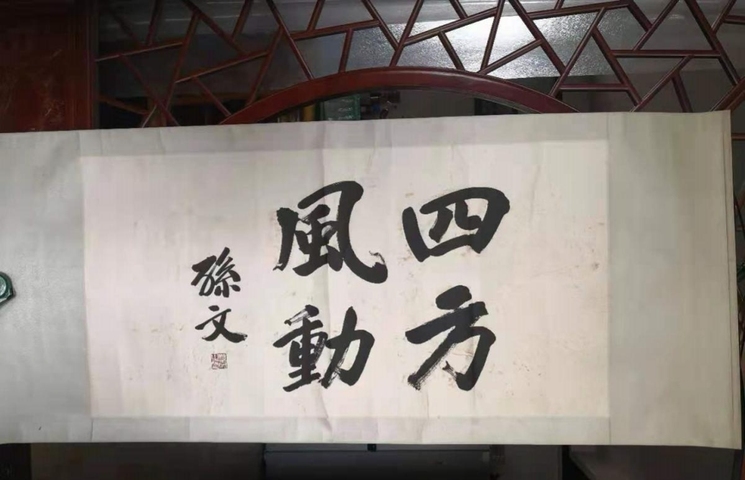 四方
風動
孫文